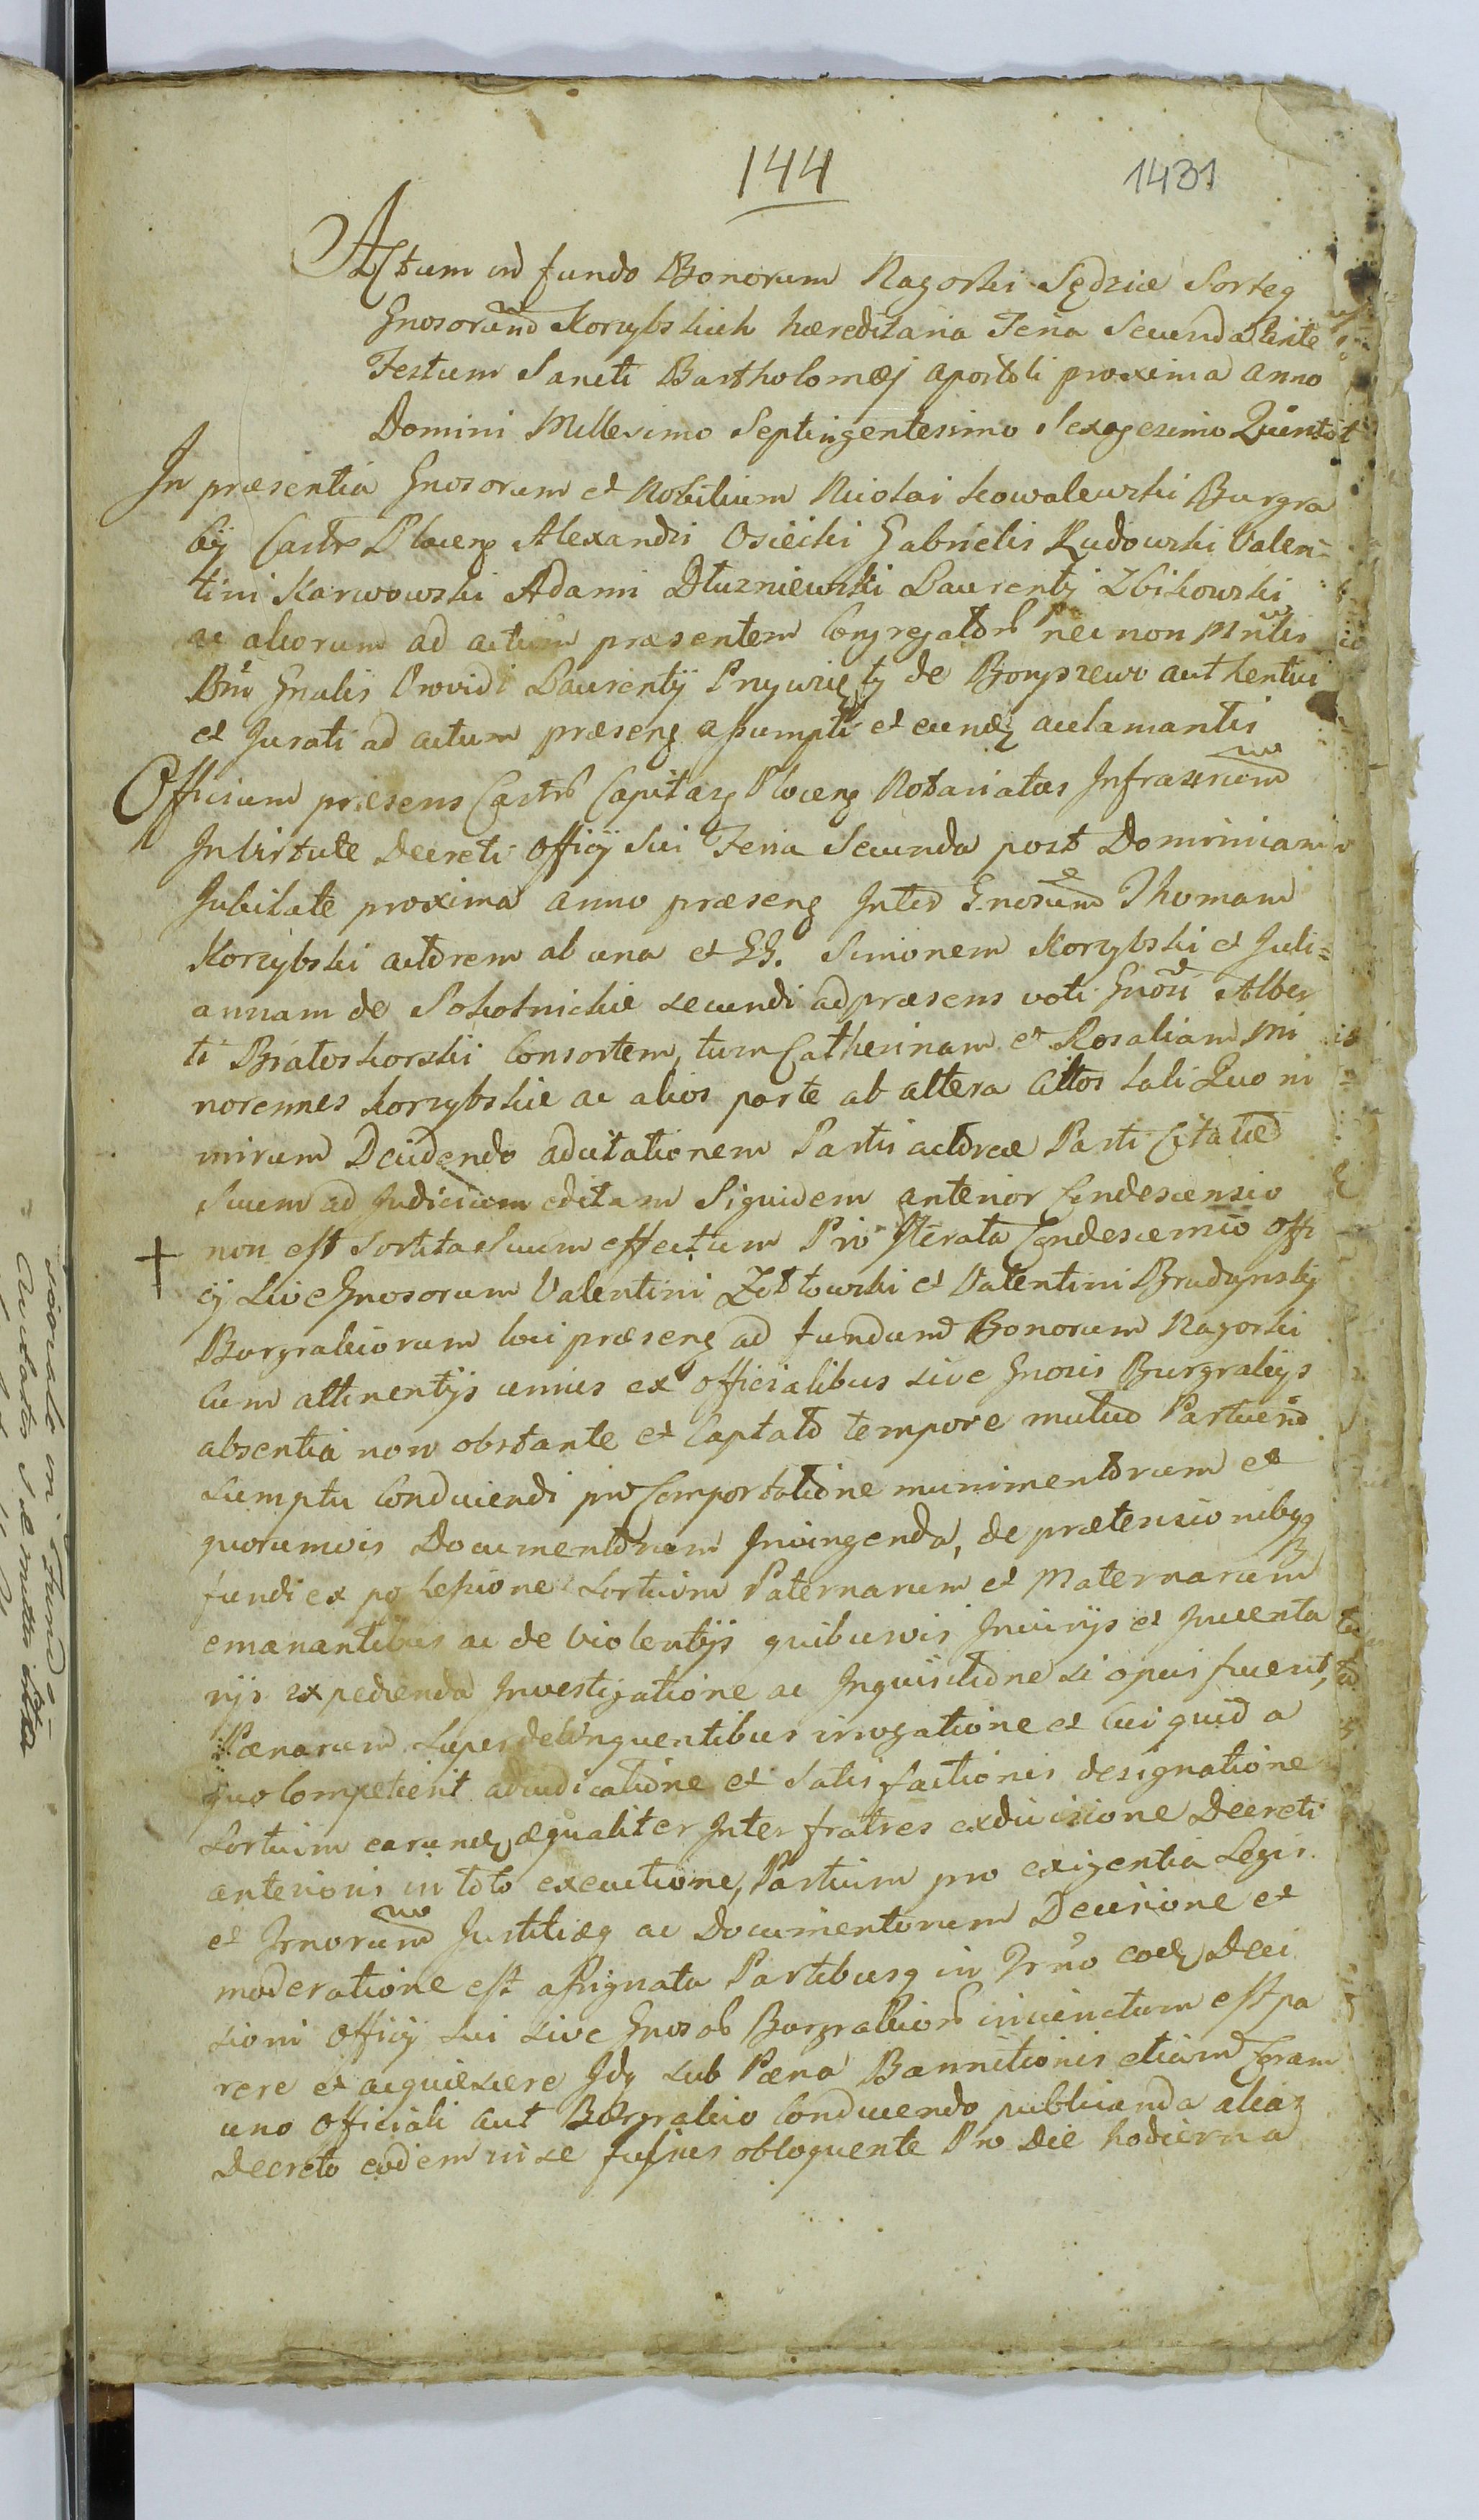 144
1431
Actum in fundo Bonorum Nagorki Sędzice Sorteq
Gnosorum Korzybskich hæreditaria Feria Secunda Ante
Festum Sancti Bartholomæj Apostoli proxima Anno
Domini Millesimo Septingentesimo Sexagesimo Quinto
In præsentia Gnosorum et Nobilium Nicolai Kowalewski Burgra
bij Castr Plocens Alexandri Osiecki Gabrielis Rudowski Valen=
tini Karwowski Adami Dłuzniewski Laurentij Zbikowski
ac aliorum ad actum præsentem Congregator nec non Mntlis
Gnalis Providi Laurentij Przywięty de authentici
et Jurati ad actum præsens assumpti et eundq aclamantis
Officium præsens Castr Capitan Plocens Notariatus Infrascrum
In Virtute Decreti Officij Sui Feria Secunda post Dominicam
Jubilate proxima anno præsens Inter Gnosum Thomam
Korzybski actorem ab una et GG. Simonem Korzybski et Juli=
annam de Sokolnickie secundi ad præsens voti Gnosi Alber
ti Białoskorski Consortem, tum Catherinam et Rosaliam Mi
norennes Korzybskie ac alios parte ab altera Cittos lati Quo ni
mirum Decidendo ad citationem Partis actoreæ Parti Citatæ
Suum ad Judicium editam Siquidem anterior Condescensio
+ non est Sortita Suum effectum Pro Iterata Condescensio Offi
cij sive Gnosorum Valentini Zołtowski et Valentini Brudzynskij
Burgrabiorum loci præsens ad fundum Bonorum Nagorki
Cum attinentijs unius ex officialibus sive Gnosis Burgrabijs
absentia non obstante et Captato tempore mutuo Partium
Sumptu Conducendi pro Comportatione munimentorum et
quorumvis Documentorum Injungenda, de prætensionibus
fundi ex possessione Sortium Paternarum et Maternarum
emanantibus ac de violentijs quibusvis Injurijs et Inventa
rijs expedienda Investigatione ac Inquisitione si opus fuerit,
Pænarum super delinquentibus irrogatione et Cui quid a
quo Competierit adjudicatione et Satisfactionis designatione
Sortium earundq æqualiter Inter fratres exdivisione Decreti
anterioris in toto executione, Partium pro exigentia Legis
et Irnorum Justitiæq ac Documentorum Decisione et
moderatione est assignata Partibusq in Trno eodq Deci
sioni Officij sui sive Gnosor Burgrabior injunctum est pa
rere et acquiescere Idq sub Pæna Bannitionis etiam Coram
uno Officiali aut Burgrabio Conducendo publicanda aliaz
Decreto eodem in se fusius obloquente Pro Die hodierna